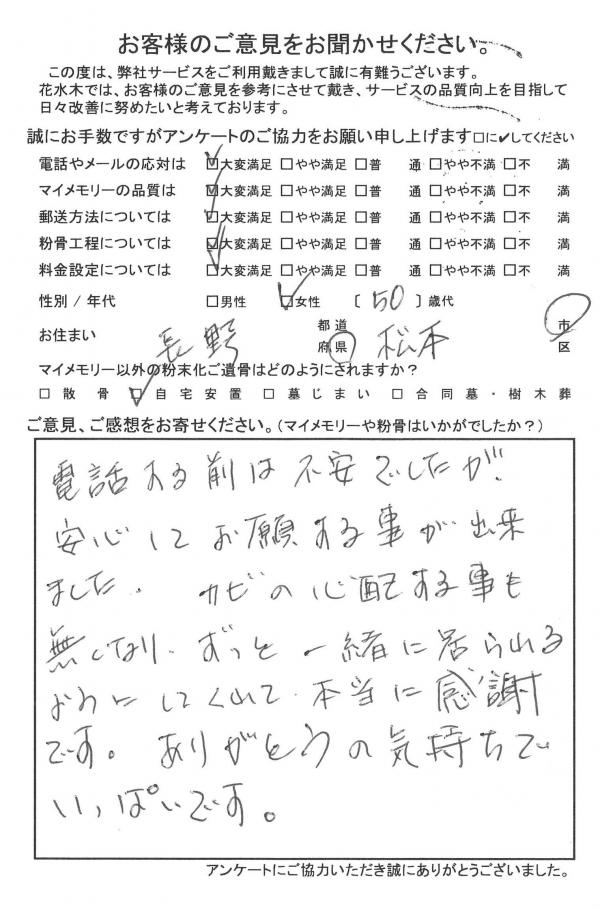 お客様のご意見をお聞かせください。
この度は、弊社サービスをご利用戴きまして誠に有難うございます。
花水木では、お客様のご意見を参考にさせて戴き、サービスの品質向上を目指して
日々改善に努めたいと考えております。
誠にお手数ですがアンケートのご協力をお願い申し上げます□に✔してください
電話やメールの応対は ☑大変満足 □やや満足 □普 通 □やや不満 □不 満
マイメモリーの品質は ☑大変満足 □やや満足 □普 通 □やや不満 □不 満
郵送方法については ☑大変満足 □やや満足 □普 通 □やや不満 □不 満
粉骨工程については ☑大変満足 □やや満足 □普 通 □やや不満 □不 満
料金設定については ☑大変満足 □やや満足 □普 通 □やや不満 □不 満
性別 / 年代 □男性 ☑女性 〔 50 〕歳代
お住まい 長野 都道府県 松本 市区
マイメモリー以外の粉末化ご遺骨はどのようにされますか？
□ 散 骨 ☑ 自 宅 安 置 □ 墓 じ ま い □ 合 同 墓 ・ 樹 木 葬
ご意見、ご感想をお寄せください。（マイメモリーや粉骨はいかがでしたか？）
電話する前は不安でしたが、
安心してお願する事が出来
ました。カビの心配する事も
無くなり、ずっと一緒に居られる
ようにしてくれて、本当に感謝
です。ありがとうの気持ちで
いっぱいです。
アンケートにご協力いただき誠にありがとうございました。